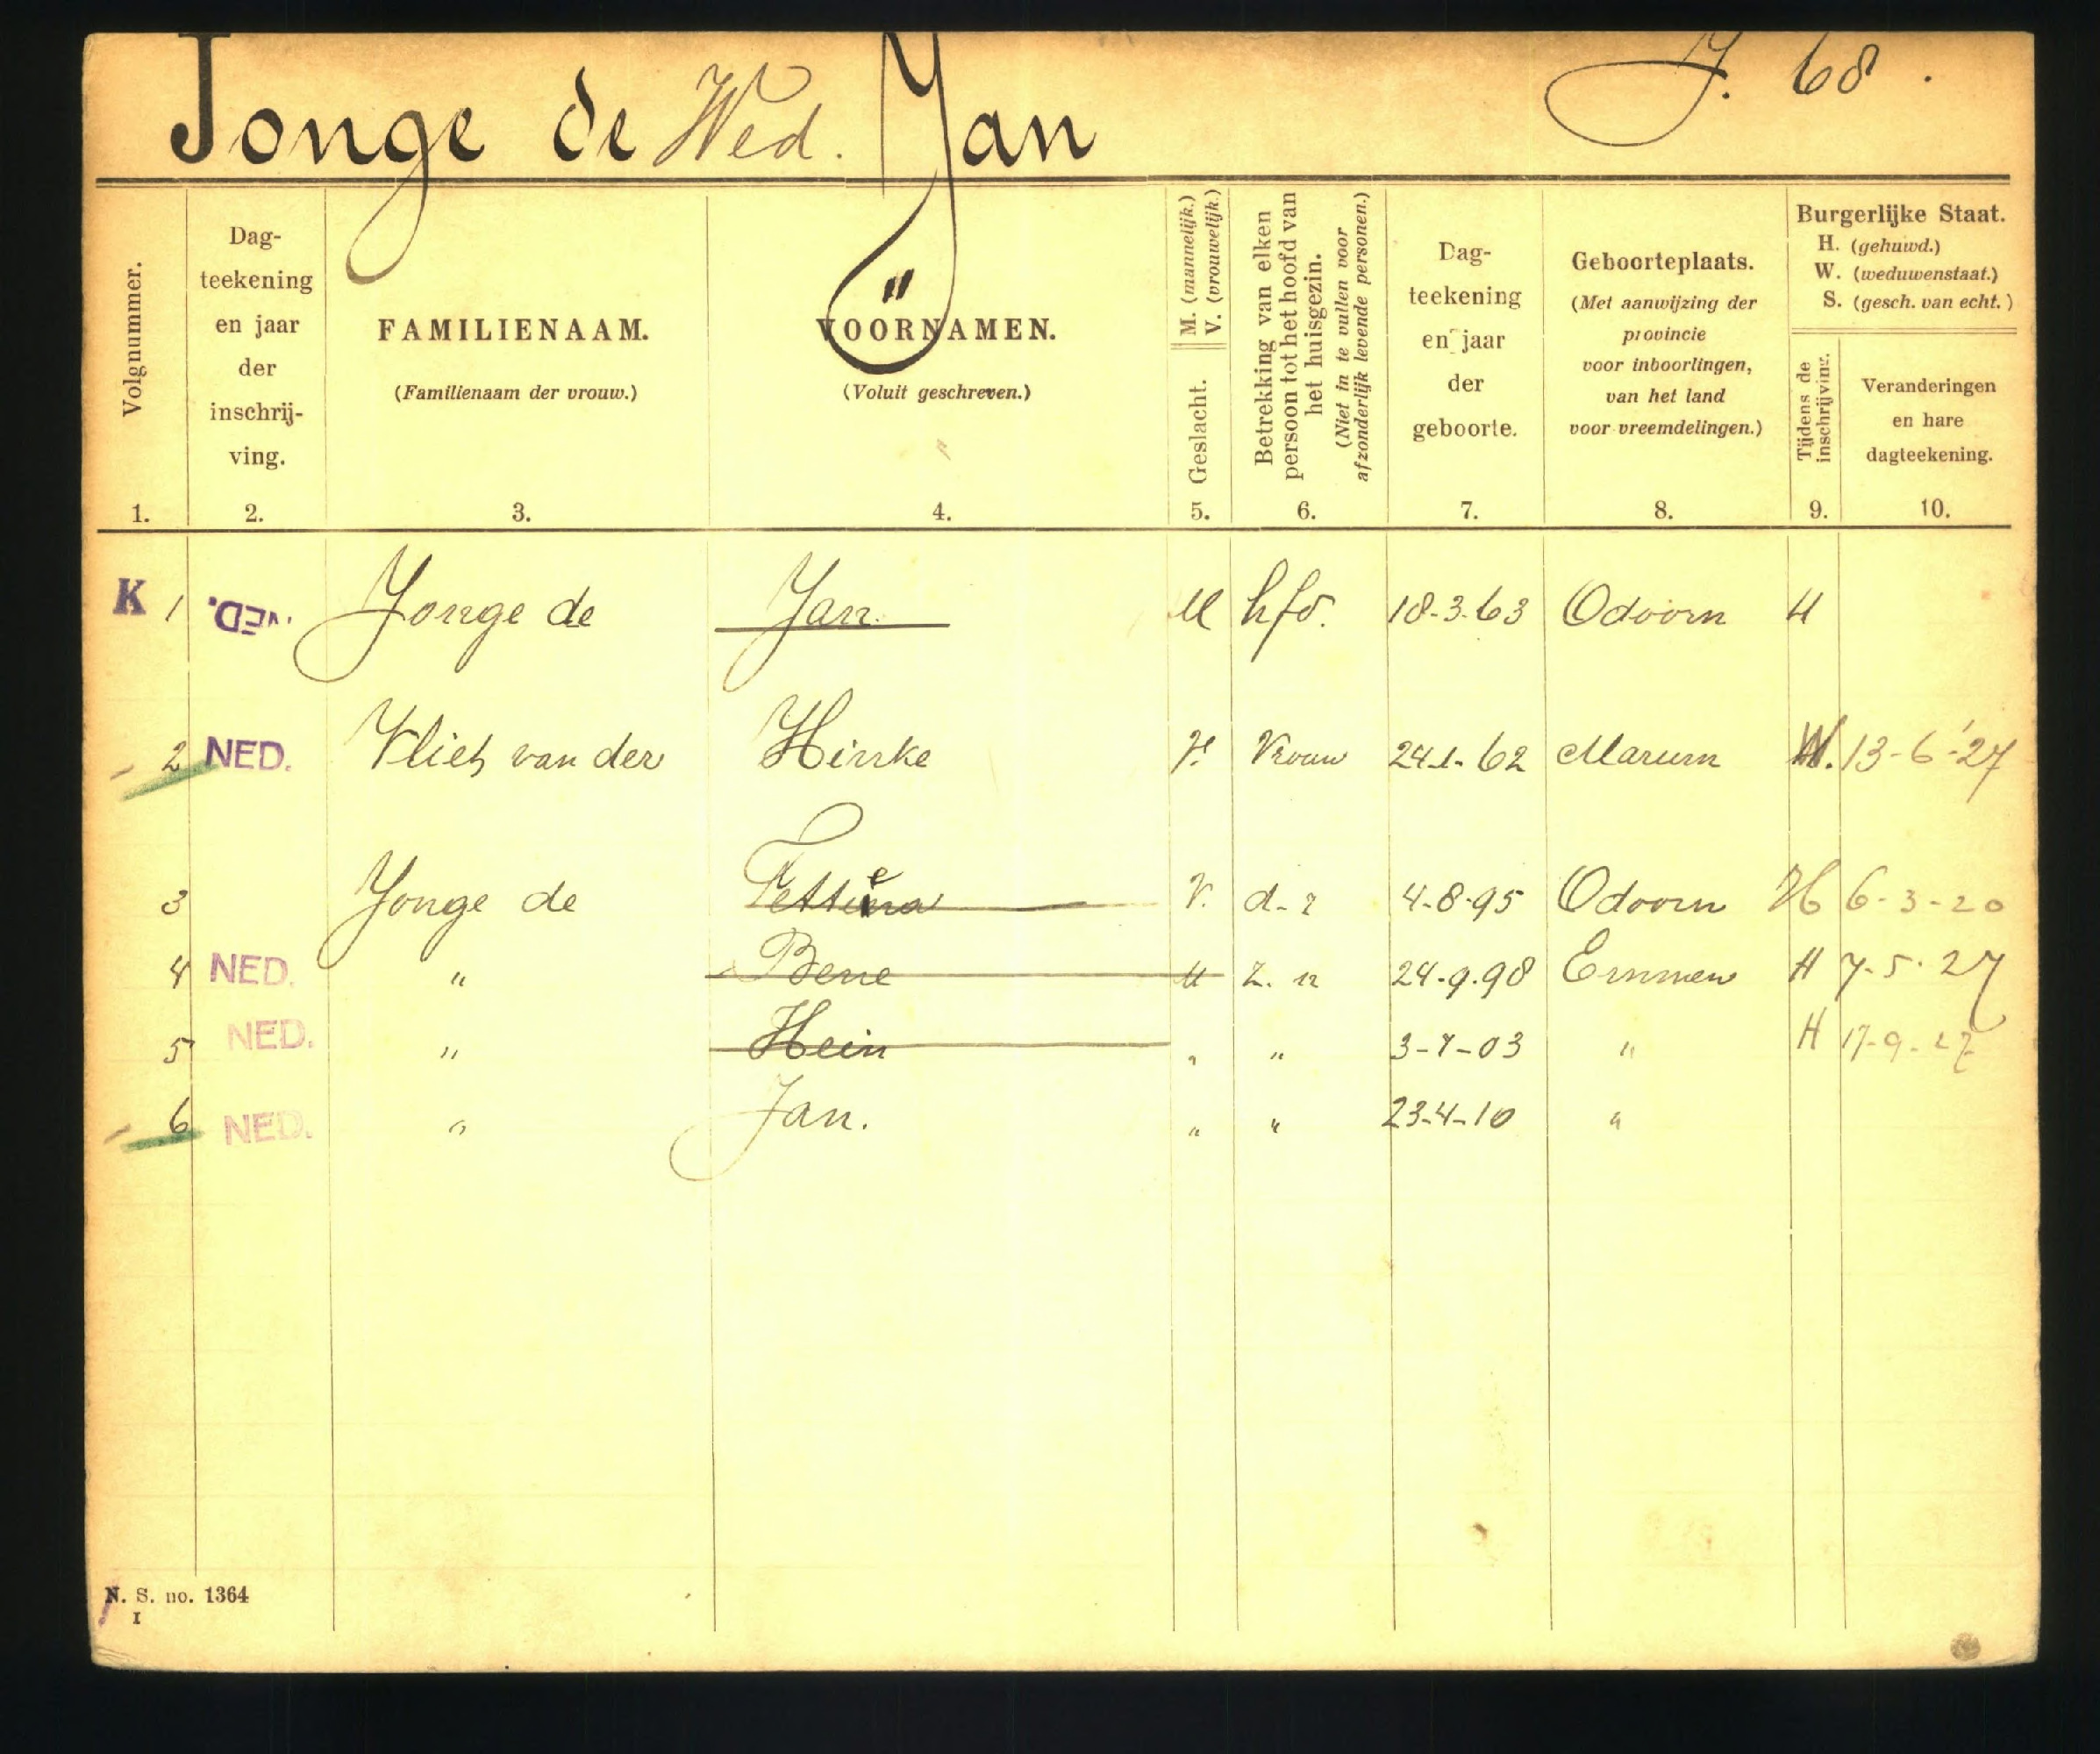 Jonge de Wed. Jan J. 68.
Volgnummer.
1.
Dag-
teekening
en jaar
der
inschrij-
ving.
2.
FAMILIENAAM.
(Familienaam der vrouw.)
3.
"
VOORNAMEN.
(Voluit geschreven.)
4.
M. (mannelijk.)
V. (vrouwelijk.)
Geslacht.
5.
Betrekking van elken
persoon tot het hoofd van
het huisgezin.
(Niet in te vullen voor
afzonderlijk levende personen.)
6.
Dag-
teekening
en jaar
der
geboorte.
7.
Geboorteplaats.
(Met aanwijzing der
provincie
voor inboorlingen,
van het land
voor vreemdelingen.)
8.
Burgerlijke Staat.
H. (gehuwd.)
W. (weduwenstaat.)
S. (gesch. van echt.)
Tijdens de
inschrijving.
9.
Veranderingen
en hare
dagteekening.
10.
K 1 NED. Jonge de Jan M hfd. 18-3-63 Odoorn H
2 NED. Vliet van der Hinke V. Vrouw 24-1-62 Marum W. 13-6-'27
3 Jonge de V. d-r 4-8-95 Odoorn H 6-3-20
4 NED. " Bene M Z. n 24-9-98 Emmen H 7-5-27
5 NED. " Hein " " 3-7-03 " H 17-9-27
6 NED. " Jan. " " 23-4-10 "
N. S. no. 1364
I